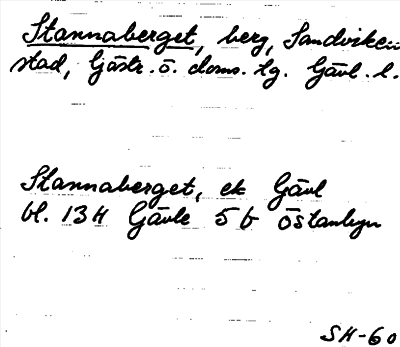 Stannaberget, berg, Sandviken
stad, Gästr. ö. doms. tg. Gävl. l.
Stannaberget, ek Gävl
bl. 13 H Gävle 5 b Östanbyn
SH-60